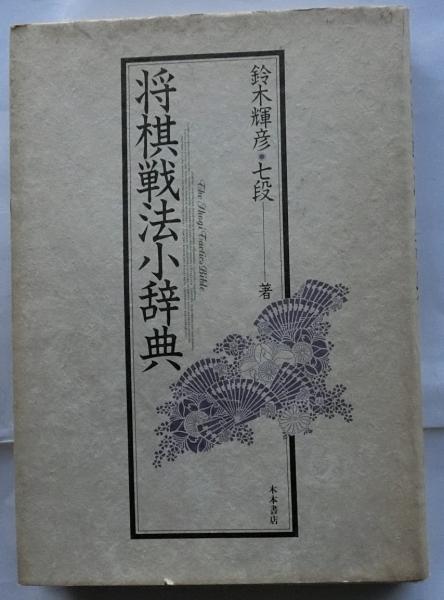 鈴木輝彦・七段
著
将棋戦法小辞典
The Shogi Tactics Bible
木本書店